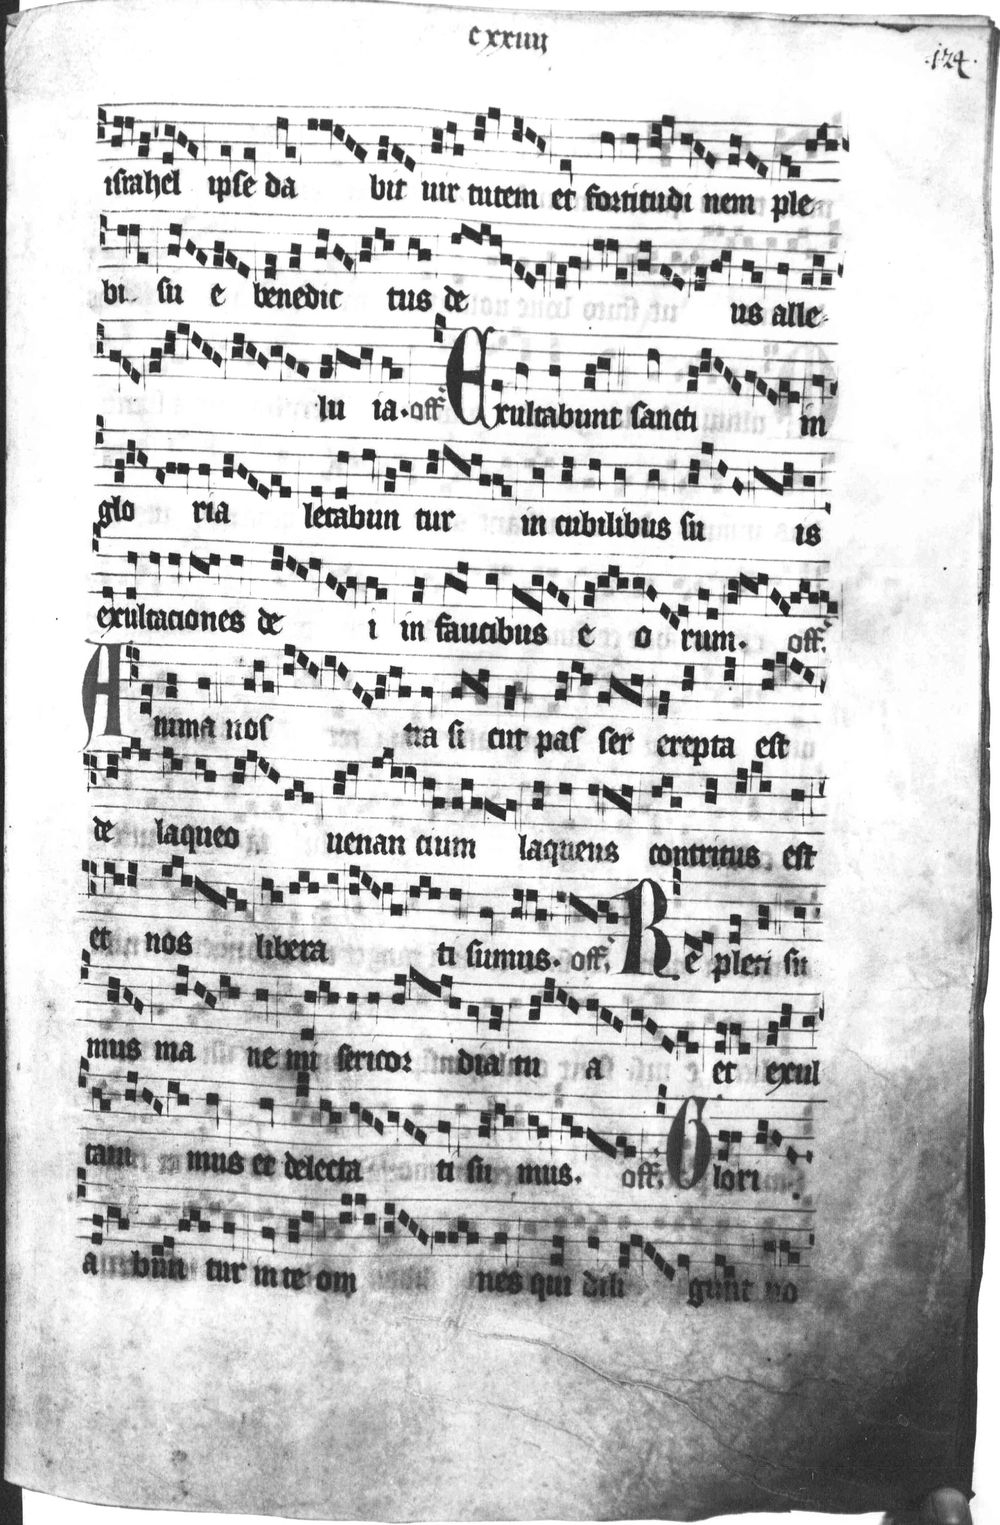 cxxiiij
.124.
israhel ipse da bit uir tutem et fortitudi nem ple
bi su e benedic tus de us alle
lu ia. off Exultabunt sancti in
glo ria letabun tur in cubilibus su is
exultaciones de i in faucibus e o rum. off.
Anima nos tra si cut pas ser erepta est
de laqueo uenan cium laqueus contritus est
et nos libera ti sumus. off. Re pleti su
mus ma ne mi sericor dia tu a et exul
tam mus et delecta ti su mus. off. Glori
a bun tur in te om nes qui dili gunt no